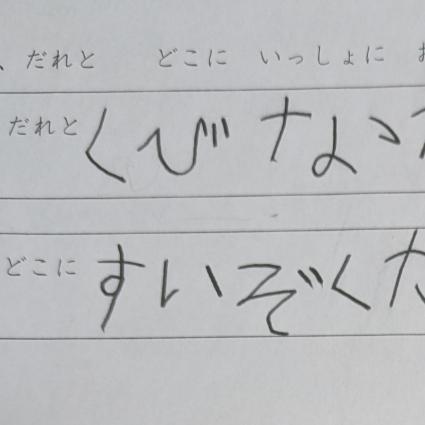 、だれと どこに いっしょに お
だれと くびな
どこに すいぞく